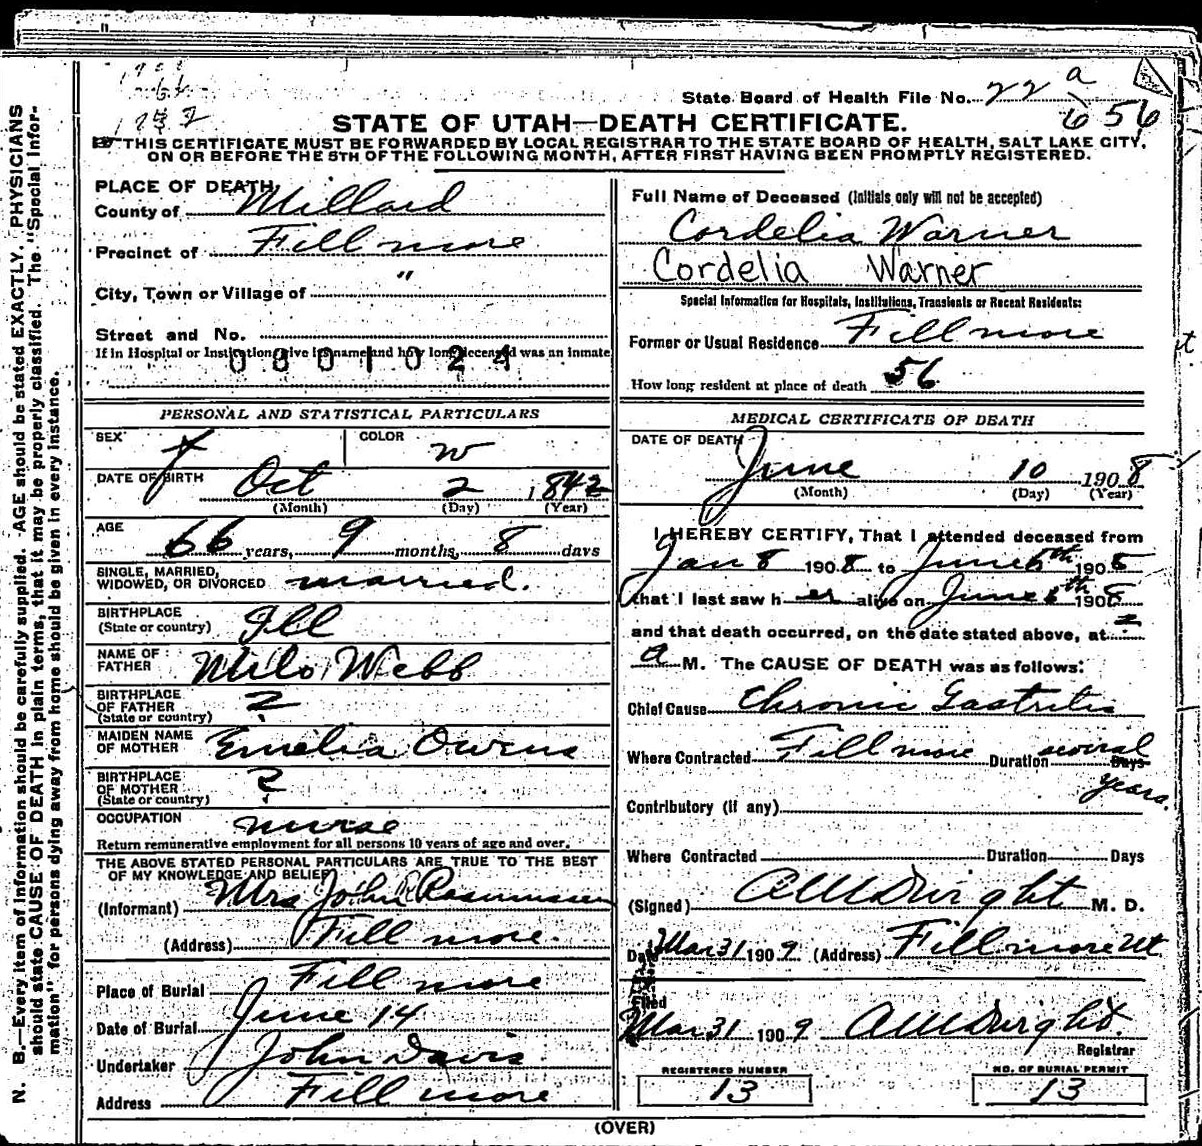 State Board of Health File No. 22 a
6 56
STATE OF UTAH—DEATH CERTIFICATE.
THIS CERTIFICATE MUST BE FORWARDED BY LOCAL REGISTRAR TO THE STATE BOARD OF HEALTH, SALT LAKE CITY,
ON OR BEFORE THE 5TH OF THE FOLLOWING MONTH, AFTER FIRST HAVING BEEN PROMPTLY REGISTERED.
N. B.—Every item of information should be carefully supplied. AGE should be stated EXACTLY. PHYSICIANS
should state CAUSE OF DEATH in plain terms, that it may be properly classified. The "Special Infor-
mation" for persons dying away from home should be given in every instance.
PLACE OF DEATH
County of Millard
Precinct of Fillmore
City, Town or Village of "
Street and No.
If in Hospital or Institution give its name and how long deceased was an inmate
0801024
PERSONAL AND STATISTICAL PARTICULARS
SEX f COLOR w
DATE OF BIRTH Oct 2 1842
(Month) (Day) (Year)
AGE 66 years, 9 months, 8 days
SINGLE, MARRIED,
WIDOWED, OR DIVORCED married.
BIRTHPLACE
(State or country) Ill
NAME OF
FATHER Milo Webb
BIRTHPLACE
OF FATHER ?
(State or country)
MAIDEN NAME
OF MOTHER Emelia Owens
BIRTHPLACE
OF MOTHER ?
(State or country)
OCCUPATION nurse
Return remunerative employment for all persons 10 years of age and over.
THE ABOVE STATED PERSONAL PARTICULARS ARE TRUE TO THE BEST
OF MY KNOWLEDGE AND BELIEF
(Informant) Mrs John Rasmussen
(Address) Fillmore.
Place of Burial Fillmore
Date of Burial June 14
Undertaker John Davis
Address Fillmore
Full Name of Deceased (Initials only will not be accepted)
Cordelia Warner
Cordelia Warner
Special Information for Hospitals, Institutions, Transients or Recent Residents:
Former or Usual Residence Fillmore
How long resident at place of death 56
MEDICAL CERTIFICATE OF DEATH
DATE OF DEATH
June 10 1908
(Month) (Day) (Year)
I HEREBY CERTIFY, That I attended deceased from
Jan 8 1908 to June 6th 1908
that I last saw her alive on June 6th 1908
and that death occurred, on the date stated above, at 2
a M. The CAUSE OF DEATH was as follows:
Chief Cause Chronic Gastritis
Where Contracted Fillmore Duration several Days
years.
Contributory (if any)
Where Contracted Duration Days
(Signed) M. D.
Date Mar 31 1909 (Address) Fillmore Ut
Filed
Mar 31 1909
Registrar
REGISTERED NUMBER
13
NO. OF BURIAL PERMIT
13
(OVER)